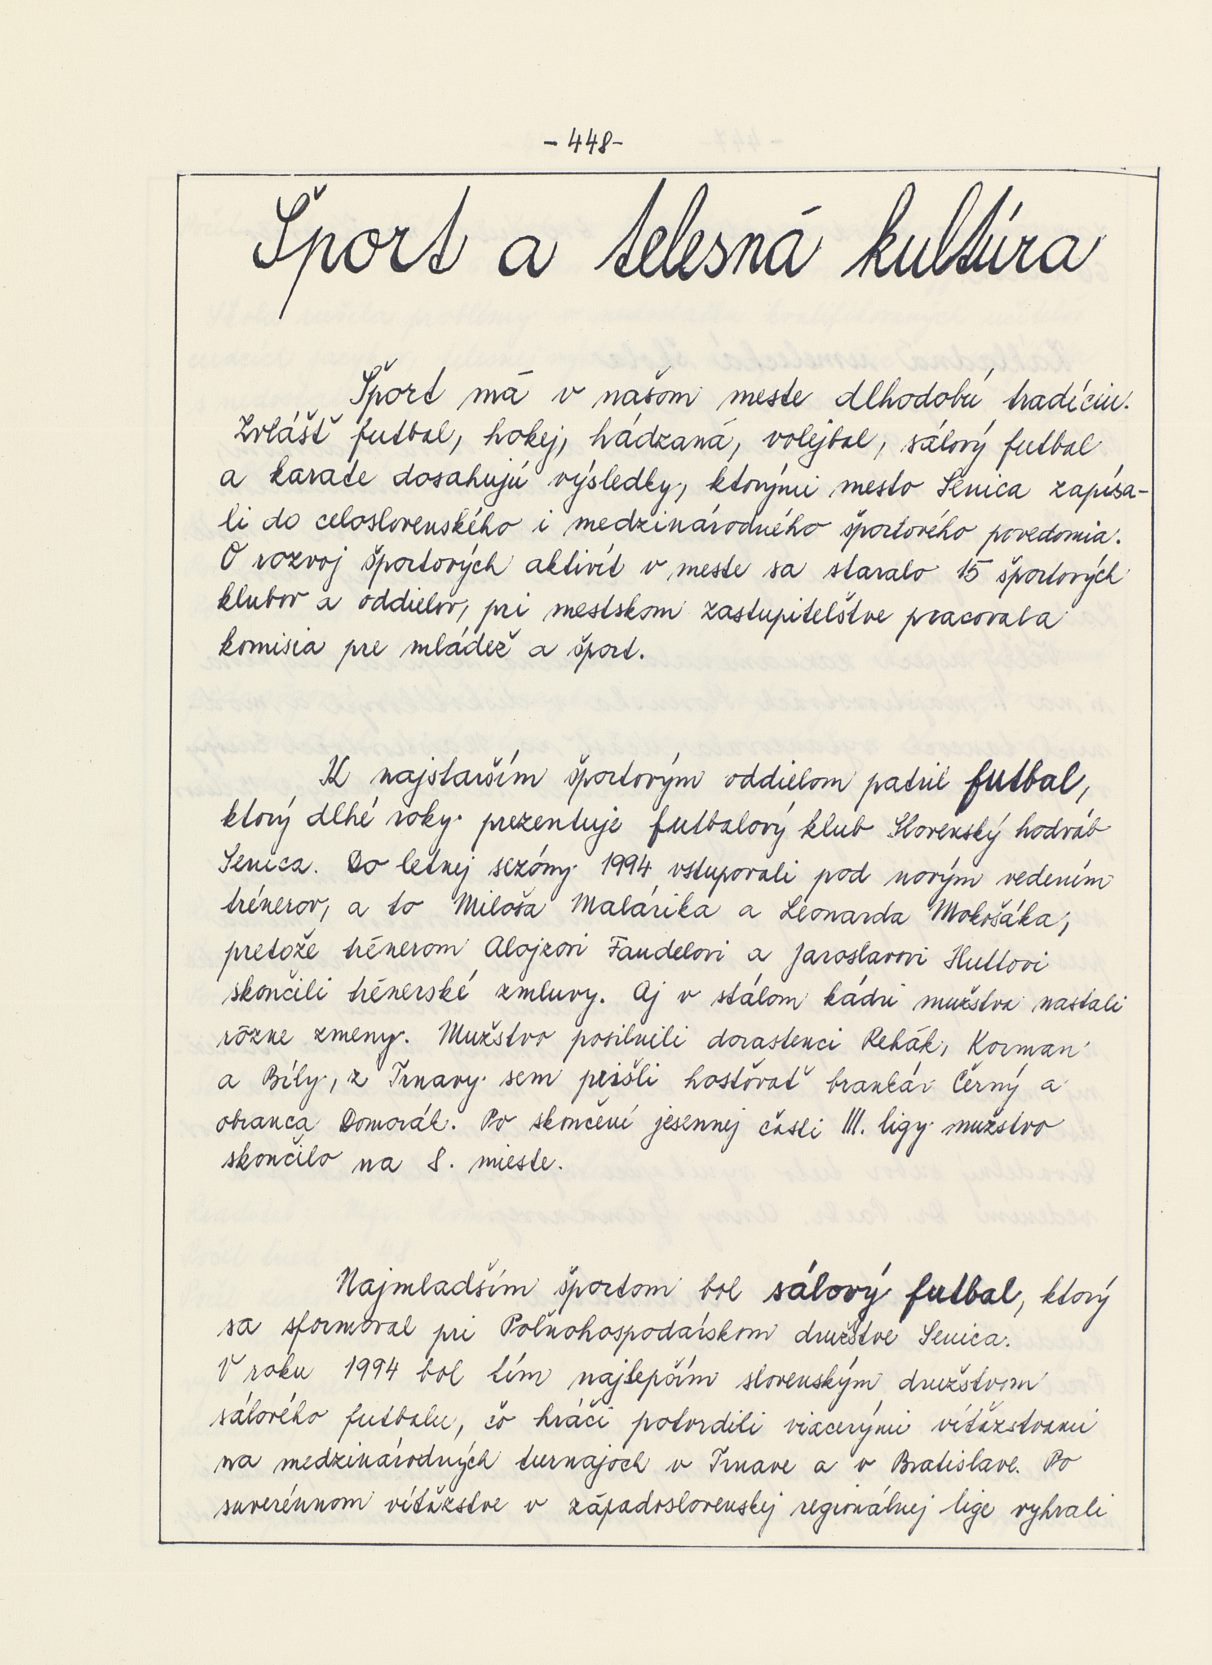 - 448 -
Šport a telesná kultúra
Šport má v našom meste dlhodobú tradíciu.
Zvlášť futbal, hokej, hádzaná, volejbal, sálový futbal
a karate dosahujú výsledky, ktorými mesto Senica zapísa-
li do celoslovenského i medzinárodného športového povedomia.
O rozvoj športových aktivít v meste sa staralo 15 športových
klubov a oddielov, pri mestskom zastupiteľstve pracovala
komisia pre mládež a šport.
K najstarším športovým oddielom patril futbal,
ktorý dlhé roky prezentuje futbalový klub Slovenský hodváb
Senica. Do letnej sezóny 1994 vstupovali pod novým vedením
trénerov, a to Miloša Malárika a Leonarda Mokošáka,
pretože trénerom Alojzovi Fandelovi a Jaroslavovi Huttovi
skončili trénerské zmluvy. Aj v stálom kádri mužstva nastali
rôzne zmeny. Mužstvo posilnili dorastenci Rehák, Korman
a Bíly, z Trnavy sem prišli hosťovať brankár Černý a
obranca Domorák. Po skončení jesennej časti III. ligy mužstvo
skončilo na 8. mieste.
Najmladším športom bol sálový futbal, ktorý
sa sformoval pri Poľnohospodárskom družstve Senica.
V roku 1994 bol tím najlepším slovenským družstvom
sálového futbalu, čo hráči potvrdili viacerými víťazstvami
na medzinárodných turnajoch v Trnave a v Bratislave. Po
suverénnom víťazstve v západoslovenskej regionálnej lige vyhrali